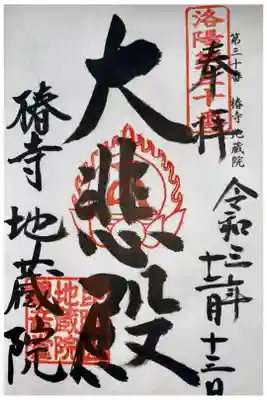 第三十番 椿寺 地蔵院
洛陽第三十番
奉拝
令和三年十二月十三日
大悲殿
椿寺 地蔵院
地蔵院